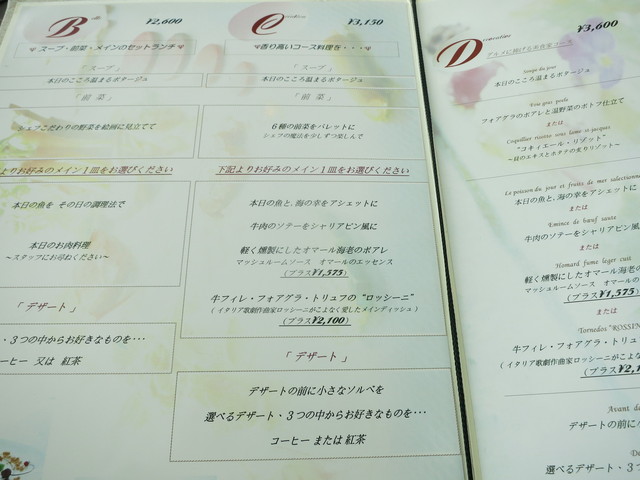 B ¥2,600
スープ・前菜・メインのセットランチ
「 スープ 」
本日のこころ温まるポタージュ
「 前 菜 」
シェフこだわりの野菜を絵画に見立てて
よりお好みのメイン1皿をお選びください
本日の魚を その日の調理法で
本日のお肉料理
～スタッフにお尋ねください～
「 デザート 」
・3つの中からお好きなものを･･･
コーヒー 又は 紅茶
C ¥3,150
香り高いコース料理を・・・
「 スープ 」
本日のこころ温まるポタージュ
「 前 菜 」
6種の前菜をパレットに
シェフの魔法を少しずつ楽しんで
下記よりお好みのメイン1皿をお選びください
本日の魚と、海の幸をアシェットに
牛肉のソテーをシャリアピン風に
軽く燻製にしたオマール海老のポアレ
マッシュルームソース オマールのエッセンス
(プラス¥1,575)
牛フィレ・フォアグラ・トリュフの"ロッシーニ"
( イタリア歌劇作曲家ロッシーニがこよなく愛したメインディッシュ )
(プラス¥2,100)
「 デザート 」
デザートの前に小さなソルベを
選べるデザート・3つの中からお好きなものを･･･
コーヒー または 紅茶
D ¥3,600
グルメに捧げるお食事コース
Soupe du jour
本日のこころ温まるポタージュ
Foie gras poele
フォアグラのポアレと温野菜のポトフ仕立て
または
Coquillier risotto sous Saint-jacques
"コキィエール・リゾット"
～貝のエキスとホタテの炙りリゾット～
Le poisson du jour et fruits de mer selectionne
本日の魚と、海の幸をアシェットに
または
Emince de bœuf saute
牛肉のソテーをシャリアピン風に
または
Homard fume leger cust
軽く燻製にしたオマール海老の
マッシュルームソース オマールの
(プラス¥1,575)
または
Tornedos "ROSSIN
牛フィレ・フォアグラ・トリュフ
( イタリア歌劇作曲家ロッシーニがこよなく
(プラス¥2,1
Avant de
デザートの前に小
De
選べるデザート・3つ